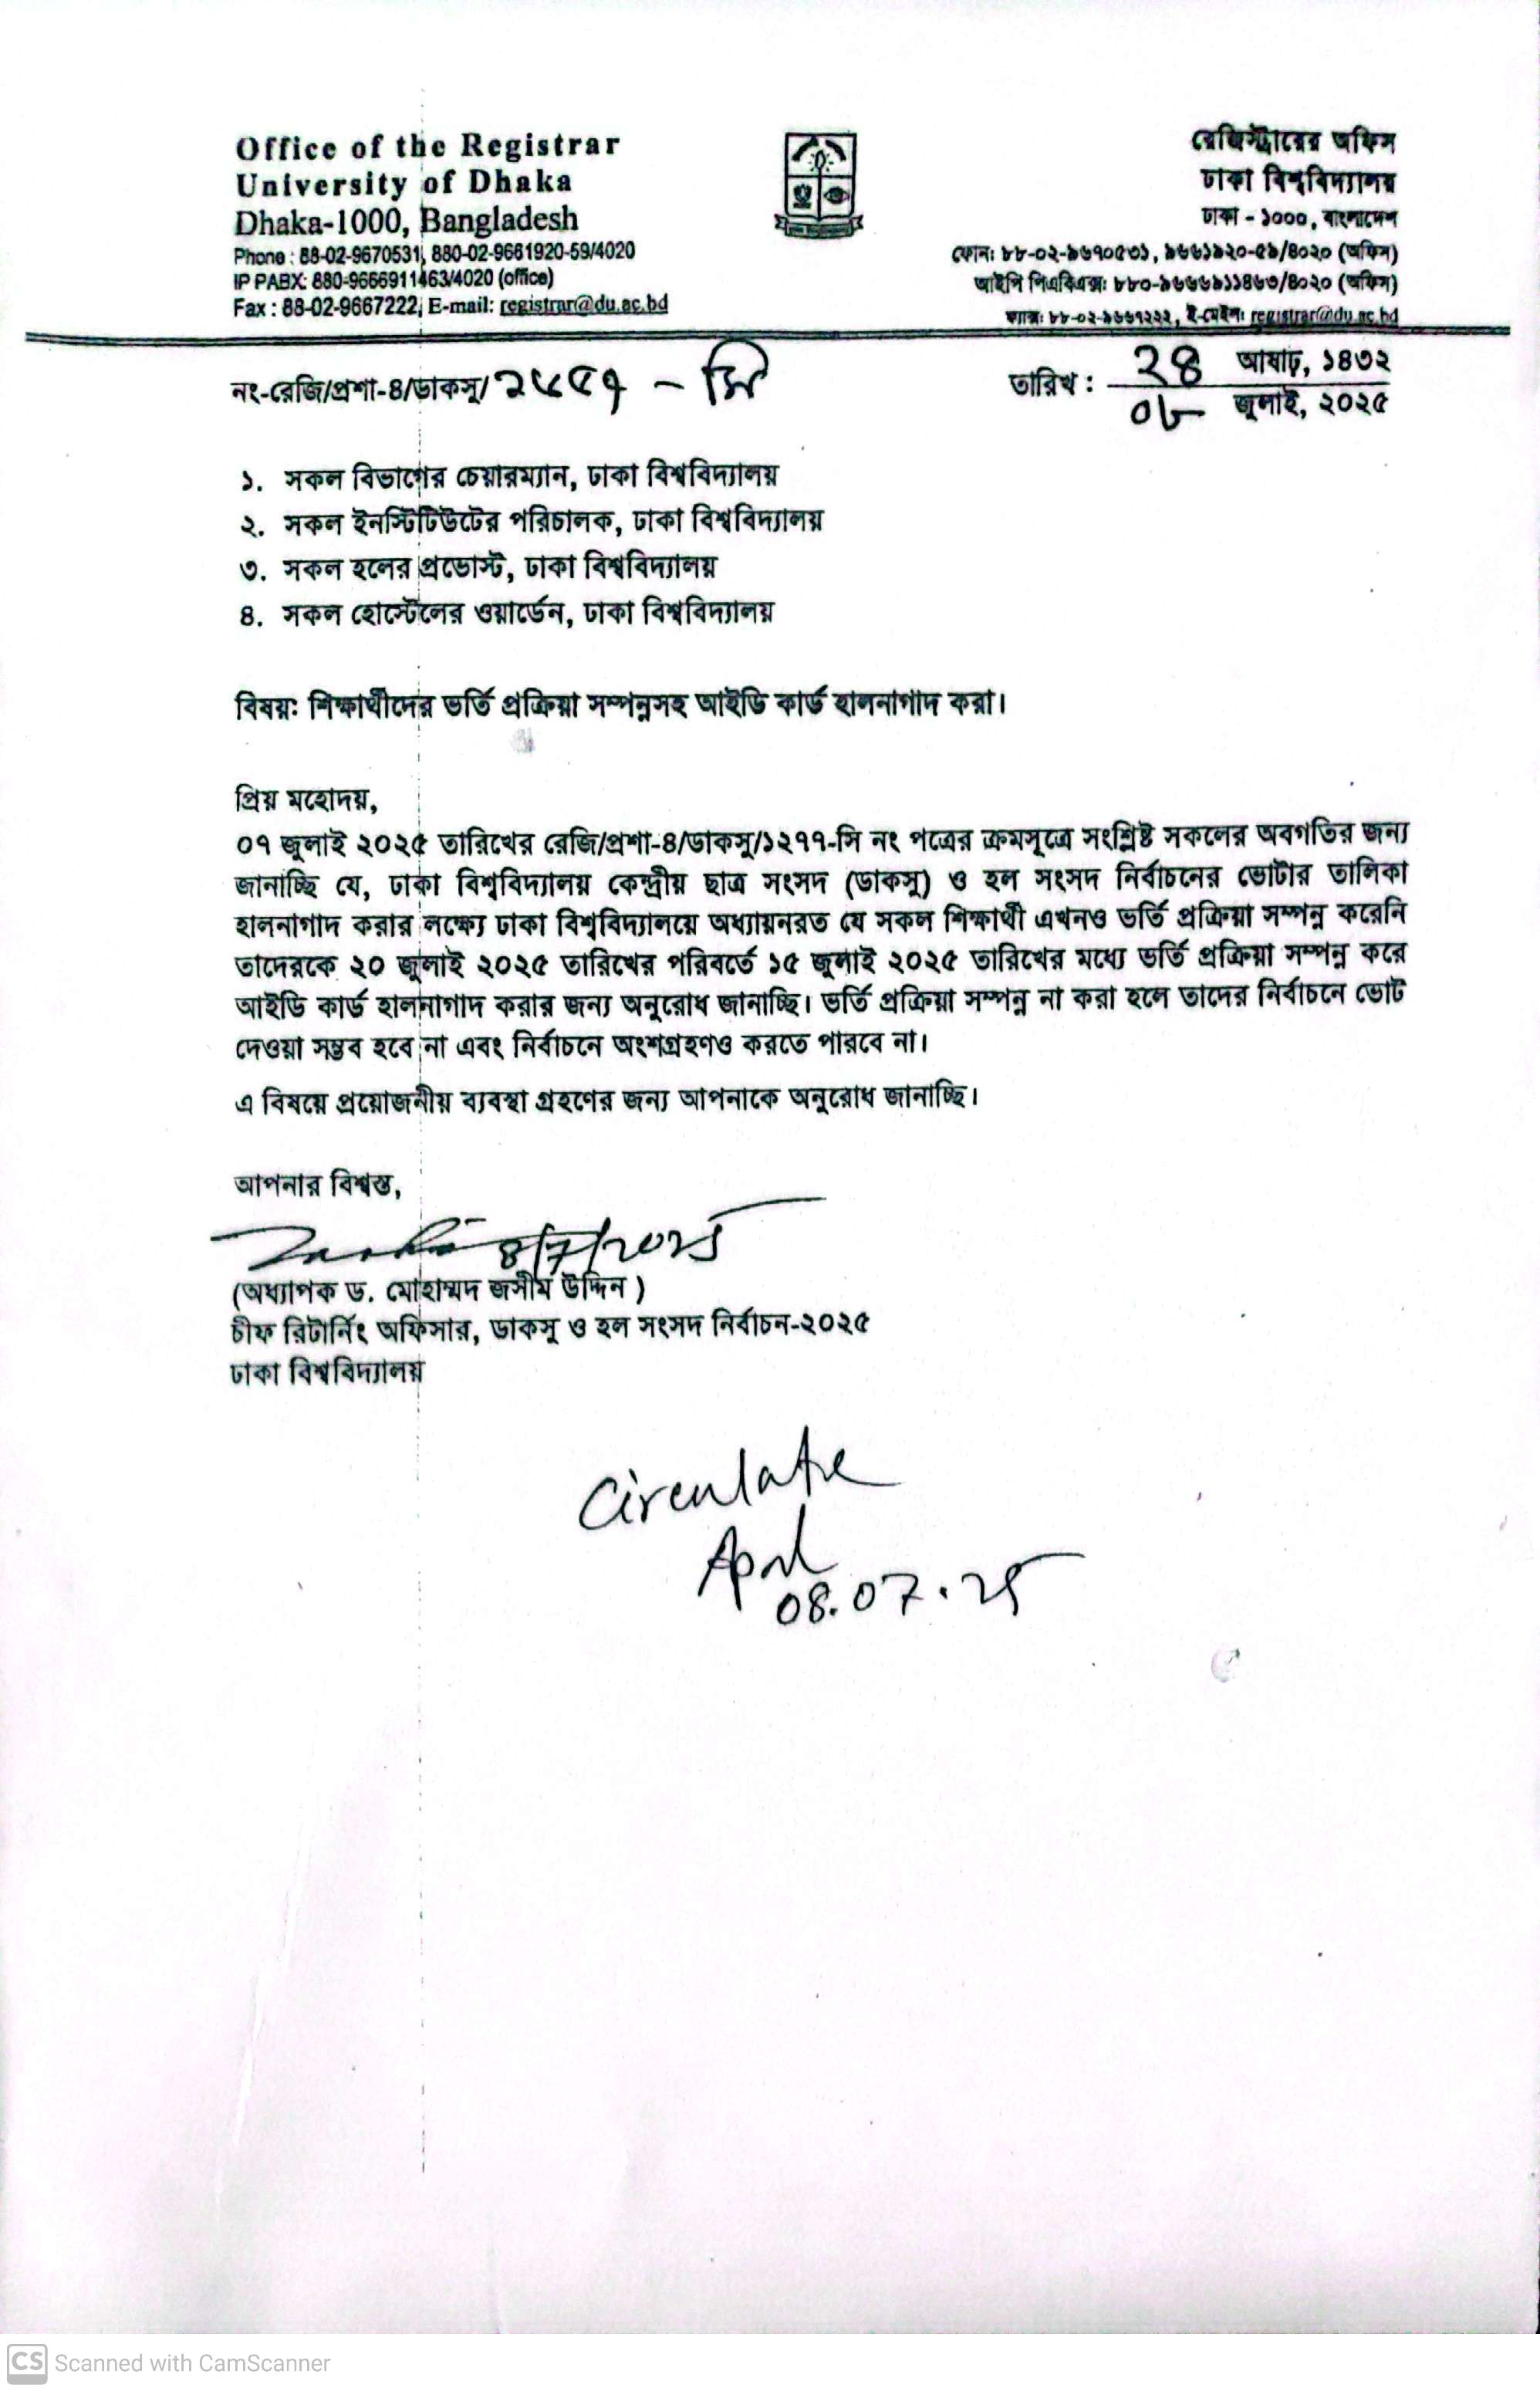 Office of the Registrar
University of Dhaka
Dhaka-1000, Bangladesh
Phone : 88-02-9670531, 880-02-9661920-59/4020
IP PABX: 880-9666911463/4020 (office)
Fax : 88-02-9667222, E-mail: registrar@du.ac.bd
রেজিস্ট্রারের অফিস
ঢাকা বিশ্ববিদ্যালয়
ঢাকা - ১০০০, বাংলাদেশ
ফোন: ৮৮-০২-৯৬৭০৫৩১, ৯৬৬১৯২০-৫৯/৪০২০ (অফিস)
আইপি পিএবিএক্স: ৮৮০-৯৬৬৬৯১১৪৬৩/৪০২০ (অফিস)
ফ্যাক্স: ৮৮-০২-৯৬৬৭২২২, ই-মেইল: registrar@du.ac.bd
নং-রেজি/প্রশা-৪/ডাকসু/ - সি
তারিখ : ২৪ আষাঢ়, ১৪৩২
০৮ জুলাই, ২০২৫
১. সকল বিভাগের চেয়ারম্যান, ঢাকা বিশ্ববিদ্যালয়
২. সকল ইনস্টিটিউটের পরিচালক, ঢাকা বিশ্ববিদ্যালয়
৩. সকল হলের প্রভোস্ট, ঢাকা বিশ্ববিদ্যালয়
৪. সকল হোস্টেলের ওয়ার্ডেন, ঢাকা বিশ্ববিদ্যালয়
বিষয়: শিক্ষার্থীদের ভর্তি প্রক্রিয়া সম্পন্নসহ আইডি কার্ড হালনাগাদ করা।
প্রিয় মহোদয়,
০৭ জুলাই ২০২৫ তারিখের রেজি/প্রশা-৪/ডাকসু/১২৭৭-সি নং পত্রের ক্রমসূত্রে সংশ্লিষ্ট সকলের অবগতির জন্য
জানাচ্ছি যে, ঢাকা বিশ্ববিদ্যালয় কেন্দ্রীয় ছাত্র সংসদ (ডাকসু) ও হল সংসদ নির্বাচনের ভোটার তালিকা
হালনাগাদ করার লক্ষ্যে ঢাকা বিশ্ববিদ্যালয়ে অধ্যায়নরত যে সকল শিক্ষার্থী এখনও ভর্তি প্রক্রিয়া সম্পন্ন করেনি
তাদেরকে ২০ জুলাই ২০২৫ তারিখের পরিবর্তে ১৫ জুলাই ২০২৫ তারিখের মধ্যে ভর্তি প্রক্রিয়া সম্পন্ন করে
আইডি কার্ড হালনাগাদ করার জন্য অনুরোধ জানাচ্ছি। ভর্তি প্রক্রিয়া সম্পন্ন না করা হলে তাদের নির্বাচনে ভোট
দেওয়া সম্ভব হবে না এবং নির্বাচনে অংশগ্রহণও করতে পারবে না।
এ বিষয়ে প্রয়োজনীয় ব্যবস্থা গ্রহণের জন্য আপনাকে অনুরোধ জানাচ্ছি।
আপনার বিশ্বস্ত,
8/7/2025
(অধ্যাপক ড. মোহাম্মদ জসীম উদ্দিন )
চীফ রিটার্নিং অফিসার, ডাকসু ও হল সংসদ নির্বাচন-২০২৫
ঢাকা বিশ্ববিদ্যালয়
Circulate
08.07.25
CS Scanned with CamScanner